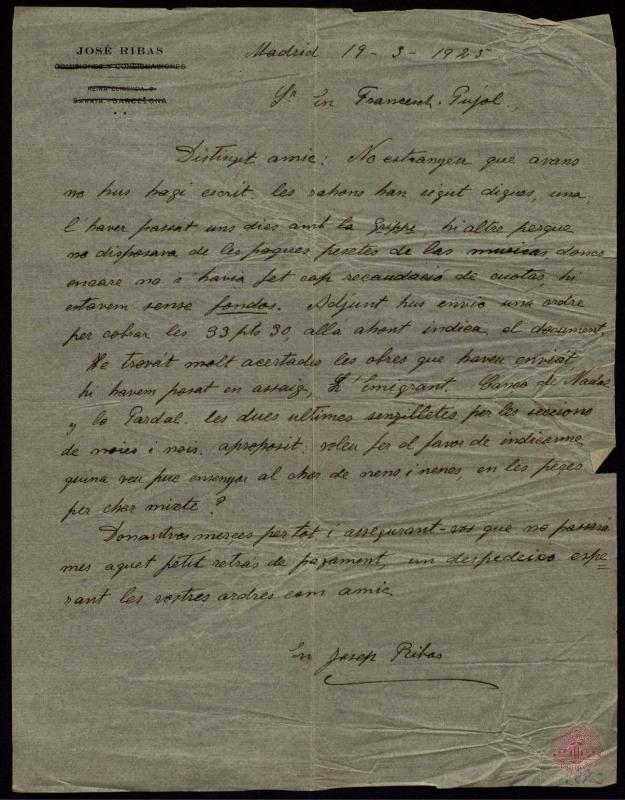 JOSÉ RIBAS
COMISIONES Y CONSIGNACIONES
REINA ELISENDA,
SARRIÁ - BARCELONA
Madrid 19 - 3 - 1925
Sr En Francesch Pujol,
Distingit amic: No estranyeu que avans
no hus hagi escrit, les rahons han sigut digues, una,
l'haver passat uns dies amb la grippe, hi altre perque
no disposava de les poques pesetes de las musicas doncs
encare no s'havia fet cap recaudació de cuotas, hi
estavem sense fondos. Adjunt hus envio una ordre
per cobrar les 33 pts 30, alla ahont indica, el document.
He trovat molt acertades les obres que haveu enviat
hi havem posat en assaig, L'Emigrant. Cansó de Nadal
y lo Pardal. les dues ultimes senzilletes per les seccions
de noies i nois. aproposit: voleu fer el favor de indicarme
quina veu puc ensenyar al chor de nens i nenes, en les peçes
per chor mixte?
Donantvos merces per tot i assegurant-vos que no passará
mes aquet petit retrás de pagament, um despedeixo espe=
rant les vostres ordres com amic
En Josep Ribas